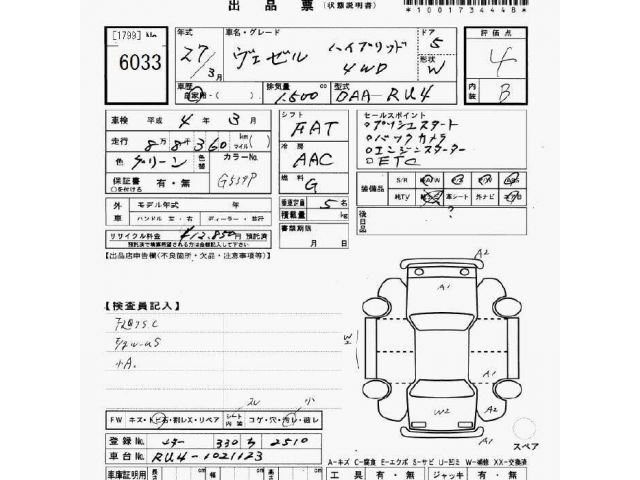 出品票 (状態説明書)
*1001734448*
[1799] kla
6033
年式 27年/3月
車名・グレード ヴェゼル ハイブリッド 4WD
ドア 5
形状 W
評価点 4
内装 B
車歴 自家用・( )
排気量 1.500 cc
型式 DAA-RU4
車検 平成 4年 3月
走行 8万8千360 km マイル( )
色 グリーン 色替
カラーNo. G539P
保証書 有・無
○を付ける
シフト FAT
冷房 AAC
燃料 G
セールスポイント
○プッシュスタート
○バックカメラ
○エンジンスターター
○ETC
装備品 S/R AW PS PW ABS
純TV 革シート 外ナビ エアB
乗車定員 5名
積載量 kg
外車 モデル年式 年
ハンドル 左・右 ディーラー・並行
書類期限 月 日
後日品
リサイクル料金 ¥12.850円 預託済
預託済で検索希望される方は金額記入して下さい
【出品店申告欄(不良箇所・欠品・注意事項等)】
【検査員記入】
+A.
スレ 小
FW キズ・ヒビ・石・割レX・リペア
シート内装 コゲ・穴・汚レ・破レ
登録No. 330 ち 2510
車台No. RU4-1021123
車庫証明用 cm cm cm
A2
A1
A1
A1
A2
W2
W
スペア
A-キズ C-腐食 E-エクボ S-サビ U-凹ミ W-補修 XX-交換済
工具 有・無 ジャッキ 有・無